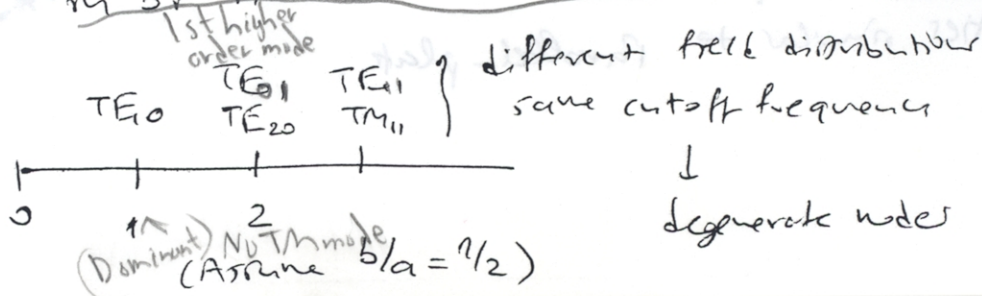 1st higher
order mode
TE10 TE01 TE11
TE20 TM11
different field distributions
same cutoff frequency
↓
degenerate modes
0 1 2
(Dominant) No TM mode
(Assume b/a = 1/2)